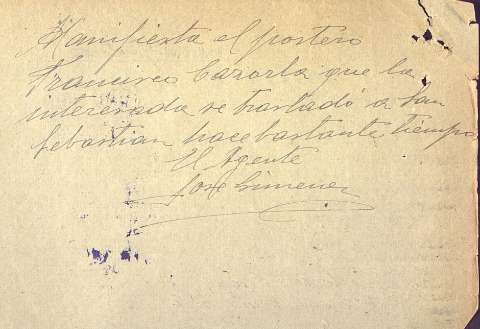 Manifiesta el portero
Francisco Cazorla que la
interesada se trasladó a San
Sebastian hace bastante tiempo
El Agente
Jose Gimenez